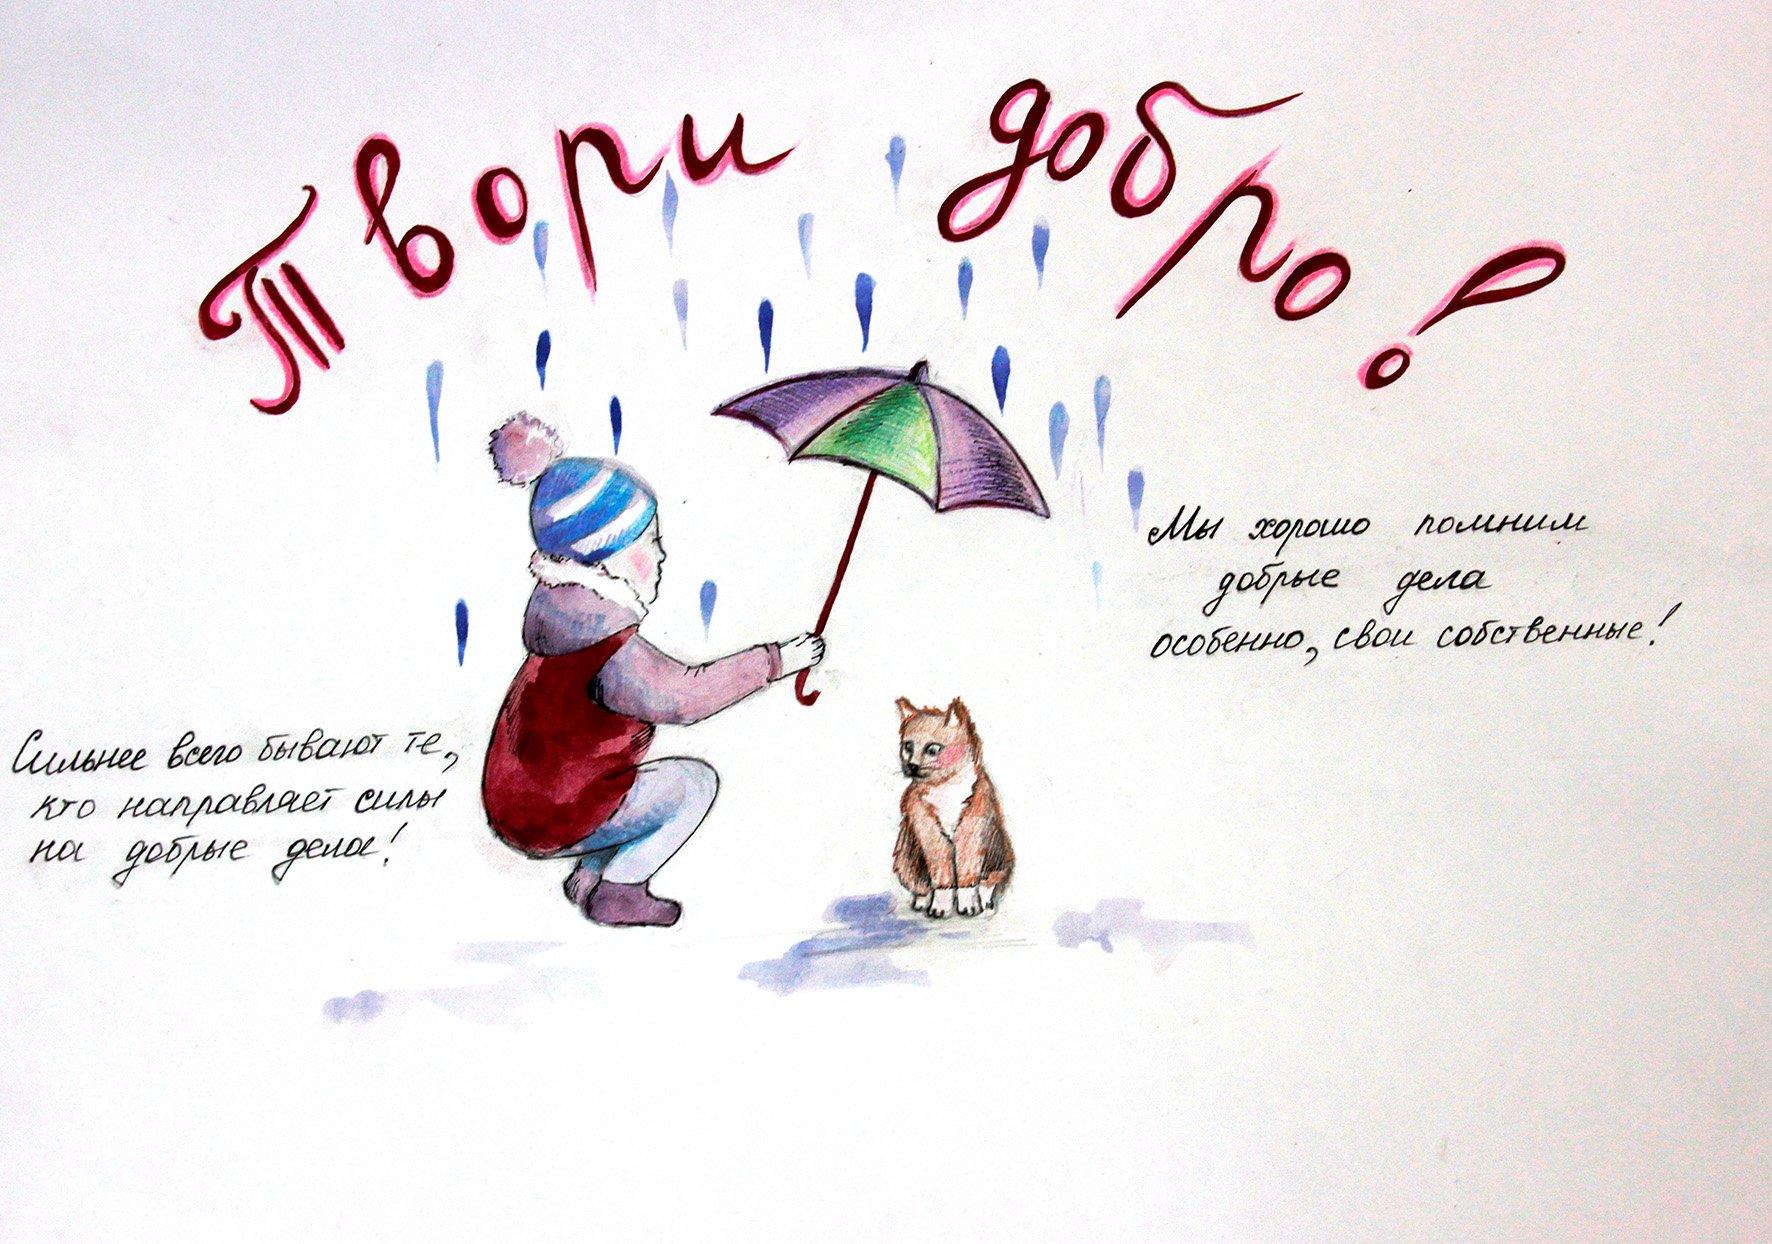 Твори добро!
Мы хорошо помним
добрые дела
особенно, свои собственные!
Сильнее всего бывают те,
кто направляет силы
на добрые дела!